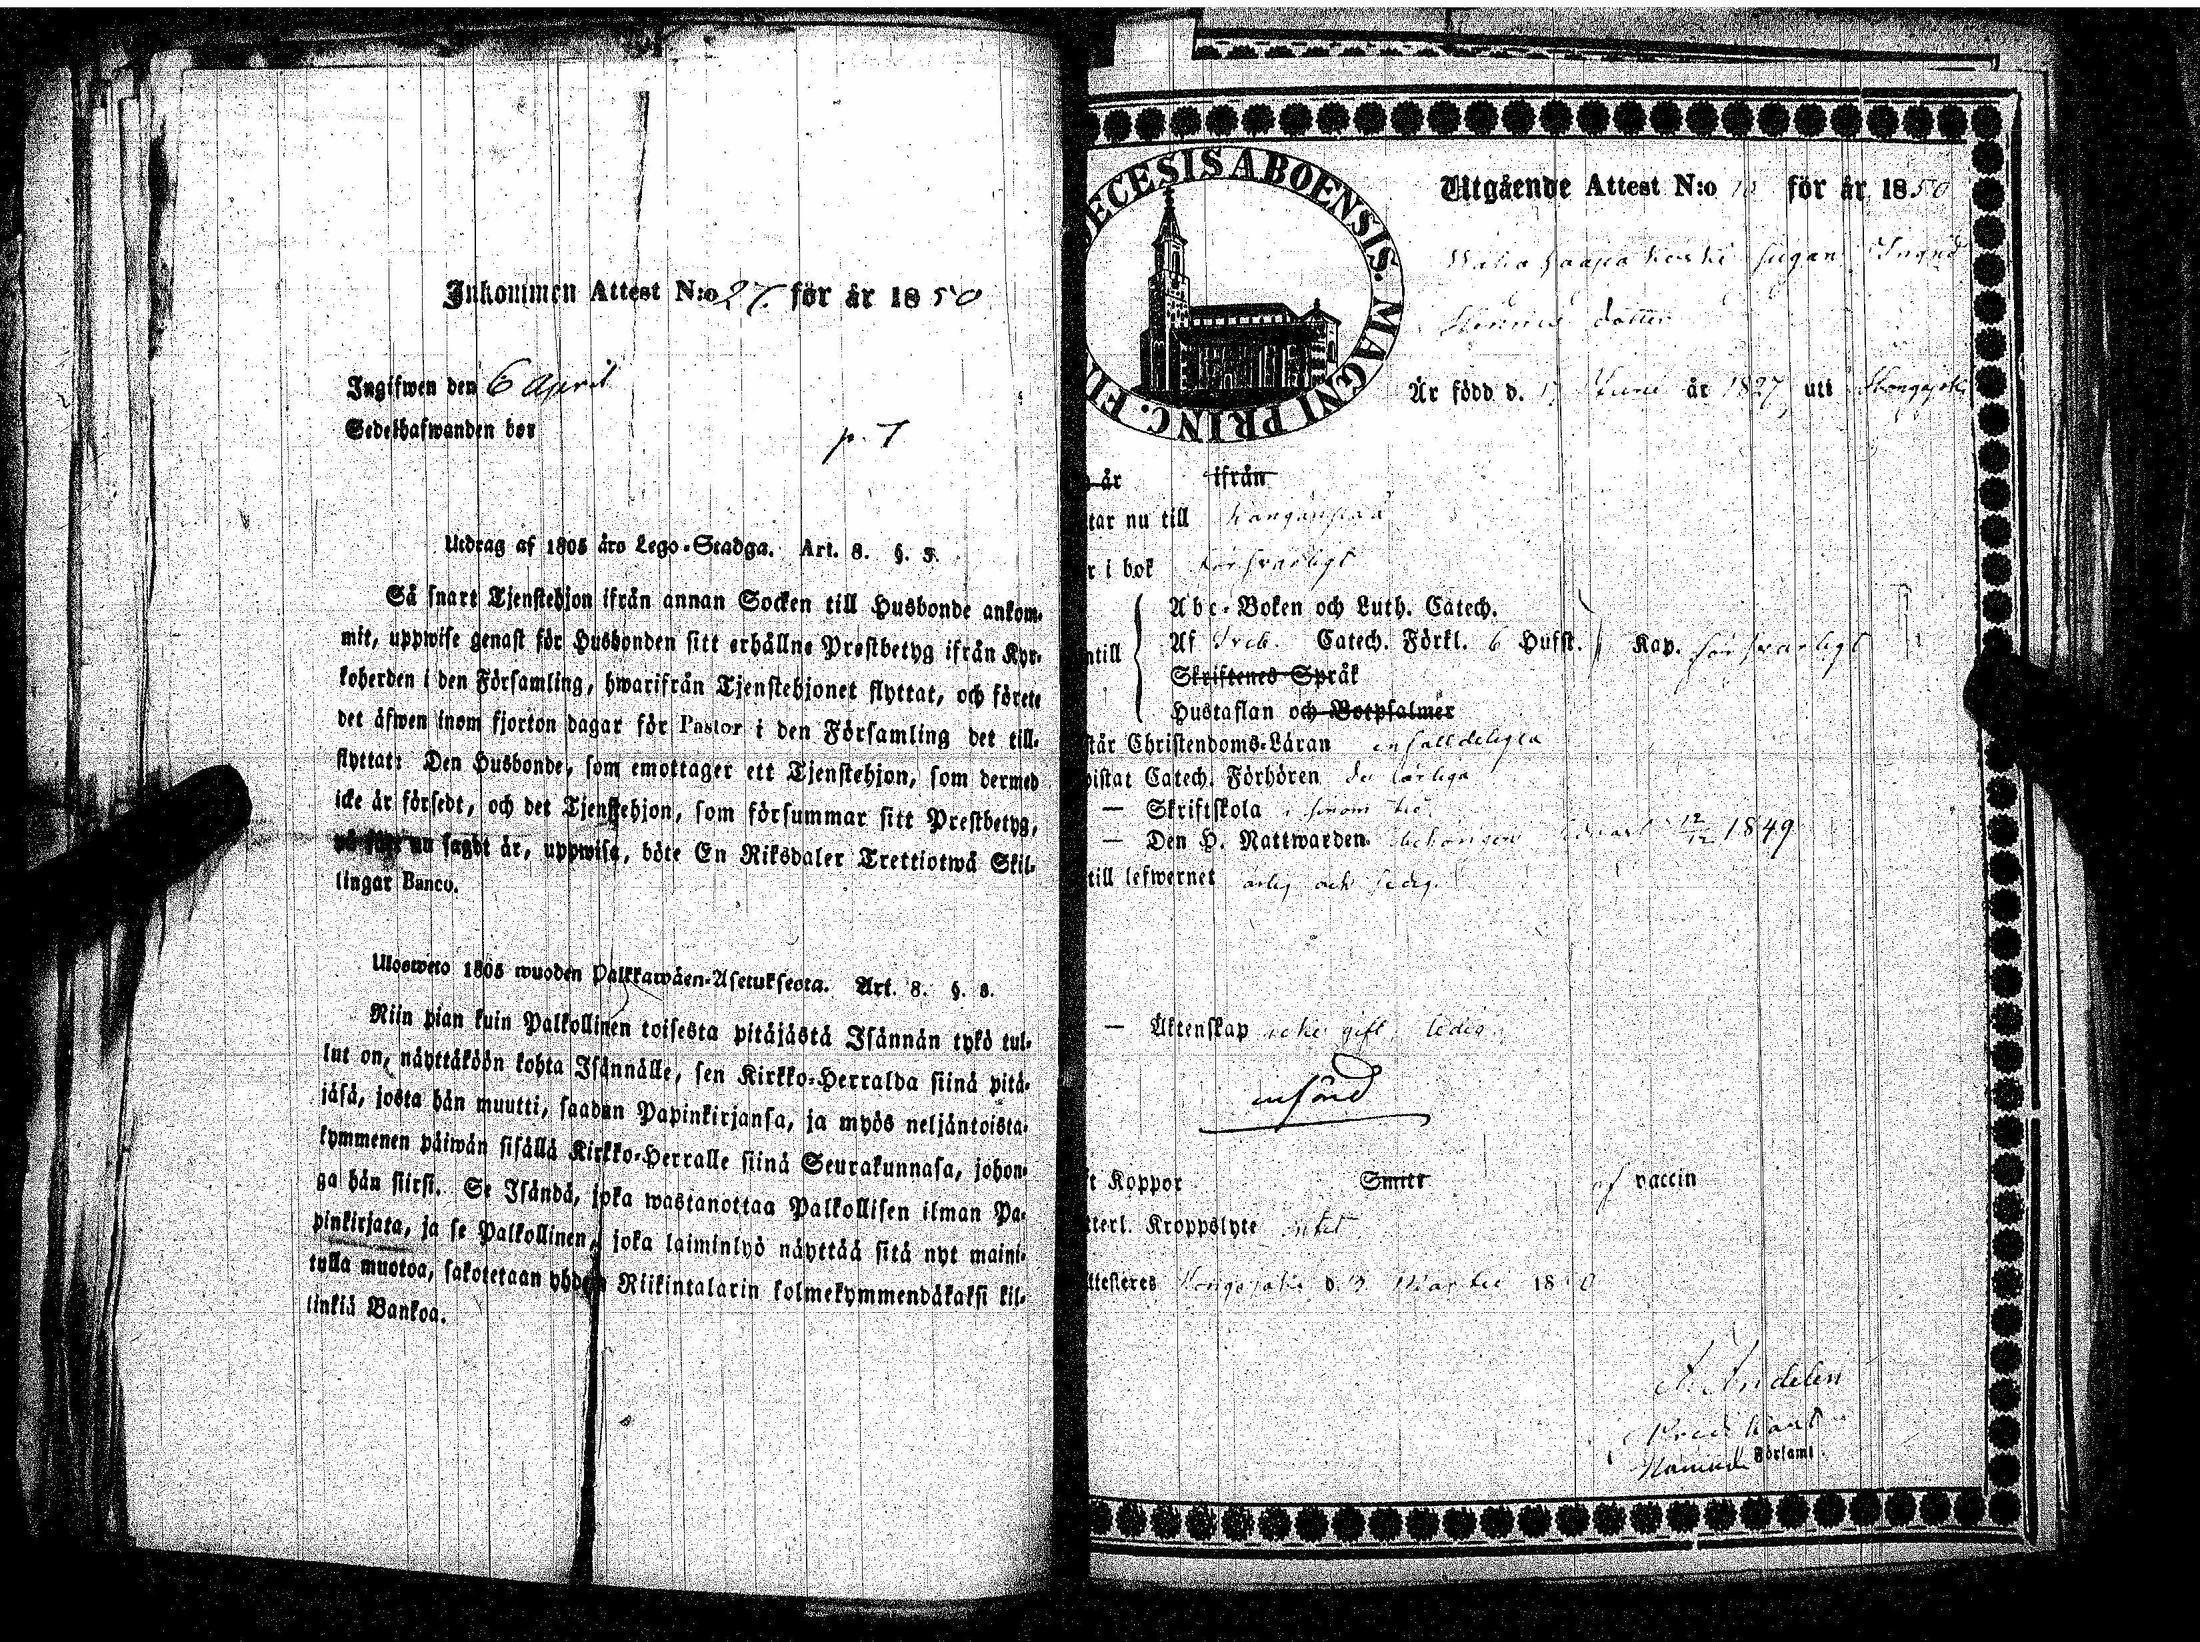 Inkommen Attest N:o 27. för år 1850
Ingifwen den 6 April
Sedelhafwanden bor
p. 7
Utdrag af 1805 års Lego-Stadga. Art. 8. §. 3.
Så snart Tjenstehjon ifrån annan Socken till Husbonde ankom-
mit, uppwise genast för Husbonden sitt erhållne Prestbetyg ifrån Kyr-
koherden i den Församling, hwarifrån Tjenstehjonet flyttat, och förete
det äfwen inom fjorton dagar för Pastor i den Församling det till-
flyttat: Den Husbonde, som emottager ett Tjenstehjon, som dermed
icke är försedt, och det Tjenstehjon, som försummar sitt Prestbetyg,
nu sagdt är, uppwisa, böte En Riksdaler Trettiotwå Skil-
lingar Banco.
Ulosweto 1805 wuoden Palkkawäen-Asetuksesta. Art. 8. §. 3.
Niin pian kuin Palkollinen toisesta pitäjästä Isännän tykö tul-
lut on, näyttäköön kohta Isännälle, sen Kirkko-Herralda siinä pitä-
jäsä, josta hän muutti, saadun Papinkirjansa, ja myös neljäntoista-
kymmenen päiwän sisällä Kirkko-Herralle siinä Seurakunnasa, johon-
ga hän siirsi. Se Isändä, joka wastanottaa Palkollisen ilman Pa-
pinkirjata, ja se Palkollinen, joka laiminlyö näyttää sitä nyt maini-
tulla muotoa, sakotetaan yhden Riikintalarin kolmekymmendäkaksi kil-
linkiä Bankoa.
ECESIS ABOENSIS. MAGNI PRINC. FI
Utgående Attest N:o för år 1850
pigan
dotter
Är född d. 17 Juni år 1827 uti
år ifrån
tar nu till
r i bok försvarligt
Abc-Boken och Luth. Catech.
ntill Af Catech. Förkl. 6 Hufst. Kap. försvarligt
Skriftenes Språk
Hustaflan och Botpsalmer
står Christendoms-Läran enfaldeligen
wistat Catech. Förhören
— Skriftskola
— Den H. Nattwarden 12/12 1849
till lefwernet ärlig och sedig.
— Äktenskap icke gift, ledig
t Koppor Smitt af vaccin
tterl. Kroppslyte intet
ttesteres d. 13 Martii 18 0
Församl.